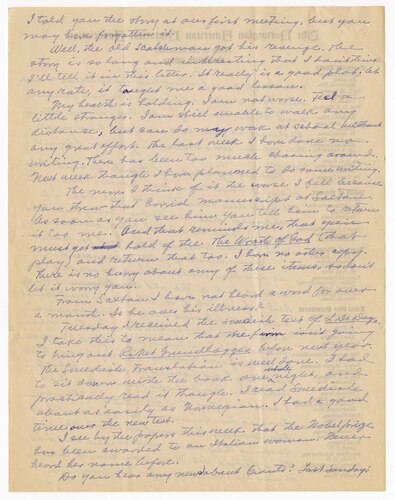 I told you the story at our first meeting, but you
may have forgotten it.
Well, the old Scotsman got his revenge. The
story is so long and interesting that I don't think
I'll tell it in this letter. It really is a good plot. At
any rate, it taught me a good lesson.
My health is holding. I am not worse. Feel a
little stronger. I am still unable to walk any
distance, but can do my work at school without
any great effort. The last week I have done no
writing. There has been too much chasing around.
Next week though I have planned to do some writing.
The more I think of it the worse I feel because
you threw that horrid manuscript at Saxton.
As soon as you see him you tell him to
it to me. And that reminds me, that you
must get hold of the The Wrath of God (that
play) and return that too. I have no other copy.
There is no hurry about any of these items, so don't
let it worry you.
From Saxton I have not heard a word for over
a month. Is he over his illness?
Tuesday I received the Swedish text of
I take this to mean that the firm isn't going
to bring out Riket Grundlägges before next year.
The Swedish translation is well done. I had
to sit down with the book one whole night, and
practically read it through. I read Swedish
about as easily as Norwegian. I had a good
time over the new text.
I see by the papers this week that the Nobel prize
has been awarded to an Italian woman. Never
heard her name before.
Do you hear any news about Giants? Last Sunday's